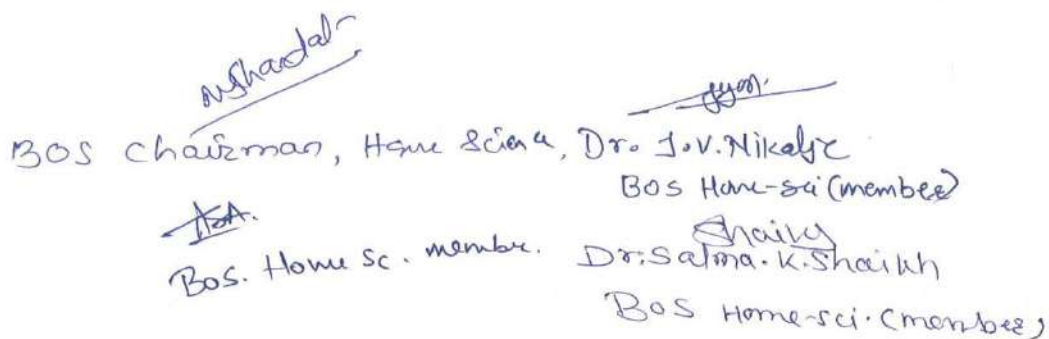 BOS Chairman, Home Science, Dr. J.V. Nikalje
BOS Home-sci (member)
Shaikh
Bos. Home Sc. member. Dr. Salma. K. Shaikh
BOS Home-sci. (member)